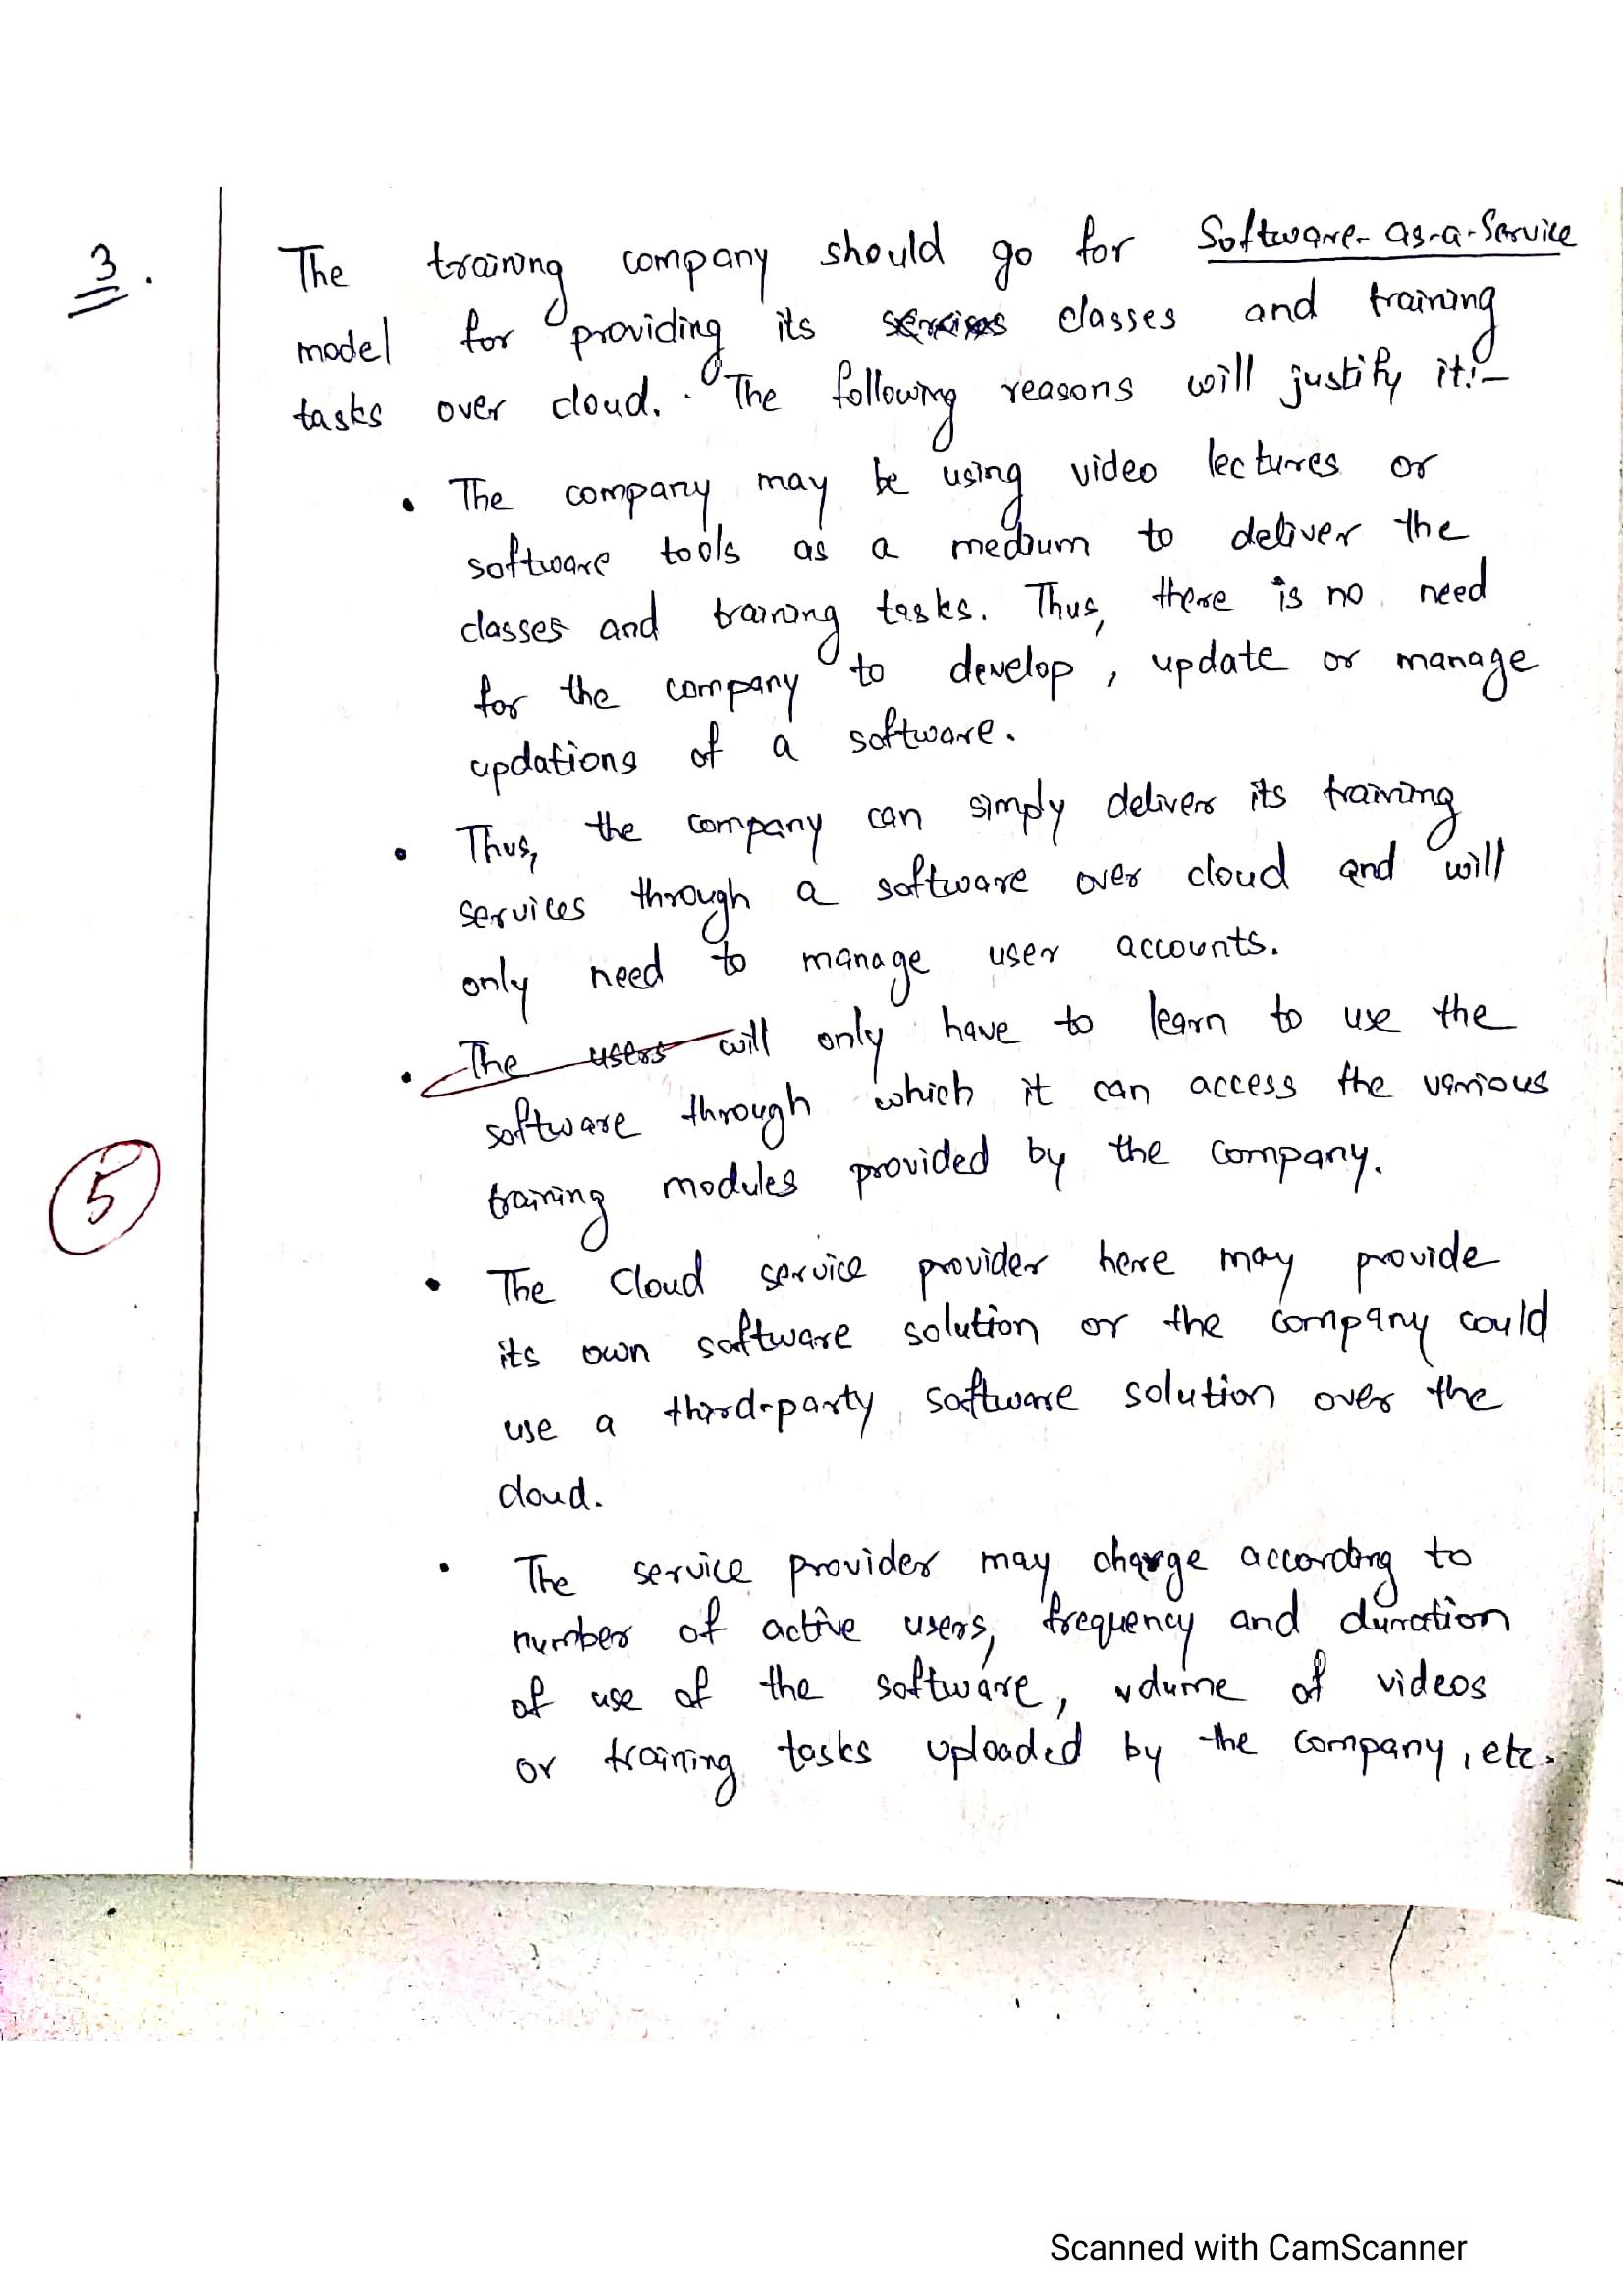 3.
The training company should go for Software-as-a-Service
model for providing its classes and training
tasks over cloud. The following reasons will justify it:-
• The company may be using video lectures or
software tools as a medium to deliver the
classes and training tasks. Thus, there is no need
for the company to develop, update or manage
updations of a software.
• Thus, the company can simply deliver its training
services through a software over cloud and will
only need to manage user accounts.
• The users will only have to learn to use the
software through which it can access the various
training modules provided by the company.
5
• The Cloud service provider here may provide
its own software solution or the company could
use a third-party software solution over the
cloud.
• The service provider may charge according to
number of active users, frequency and duration
of use of the software, volume of videos
or training tasks uploaded by the company, etc.
Scanned with CamScanner